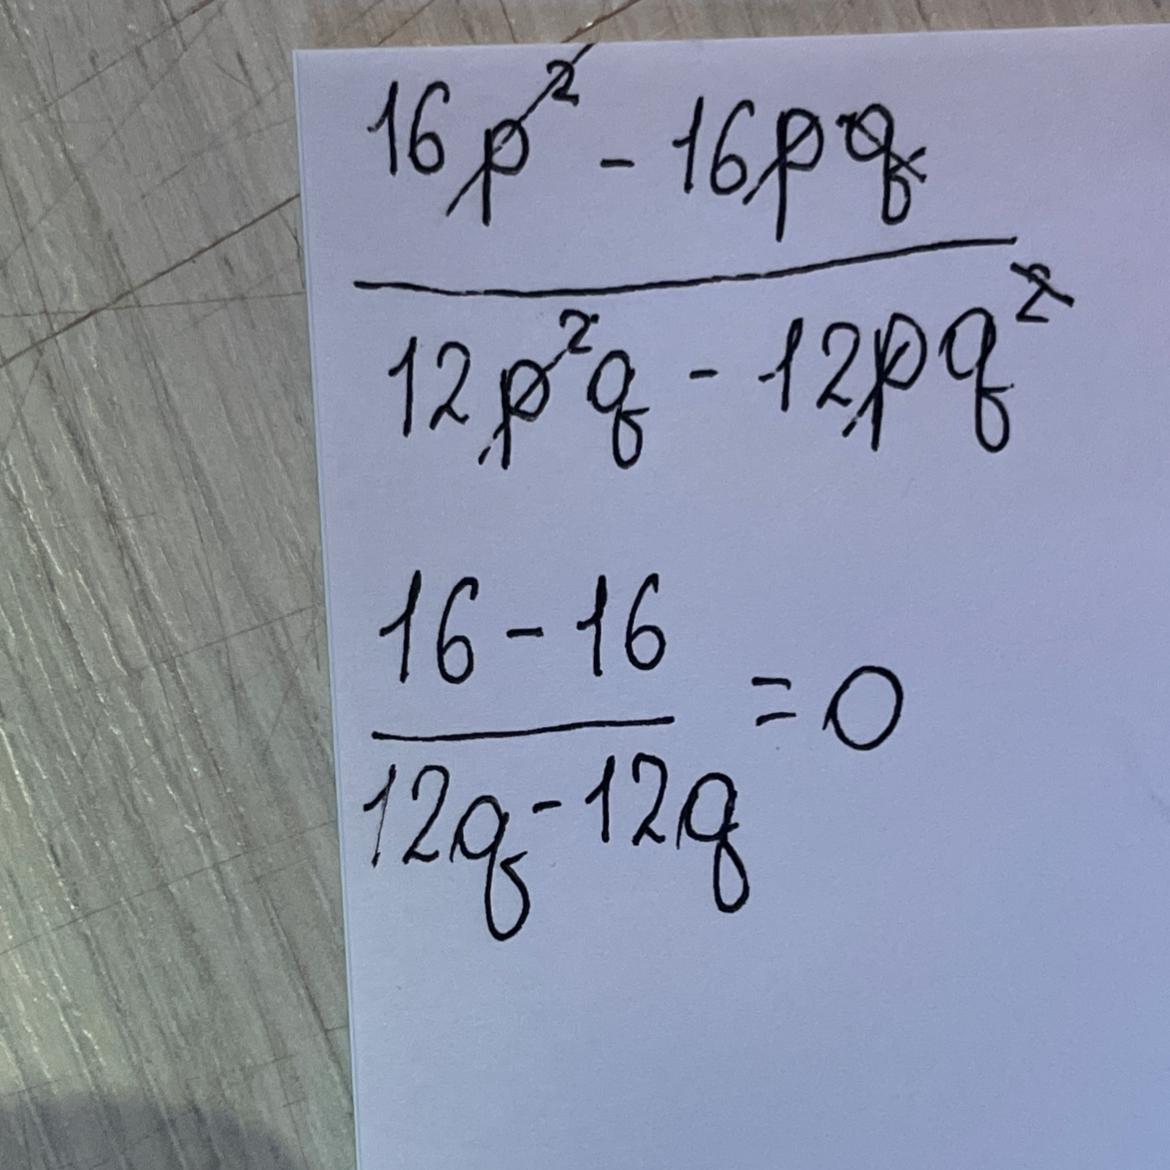 16p² - 16pq
12p²q - 12pq²
16 - 16
= 0
12q - 12q